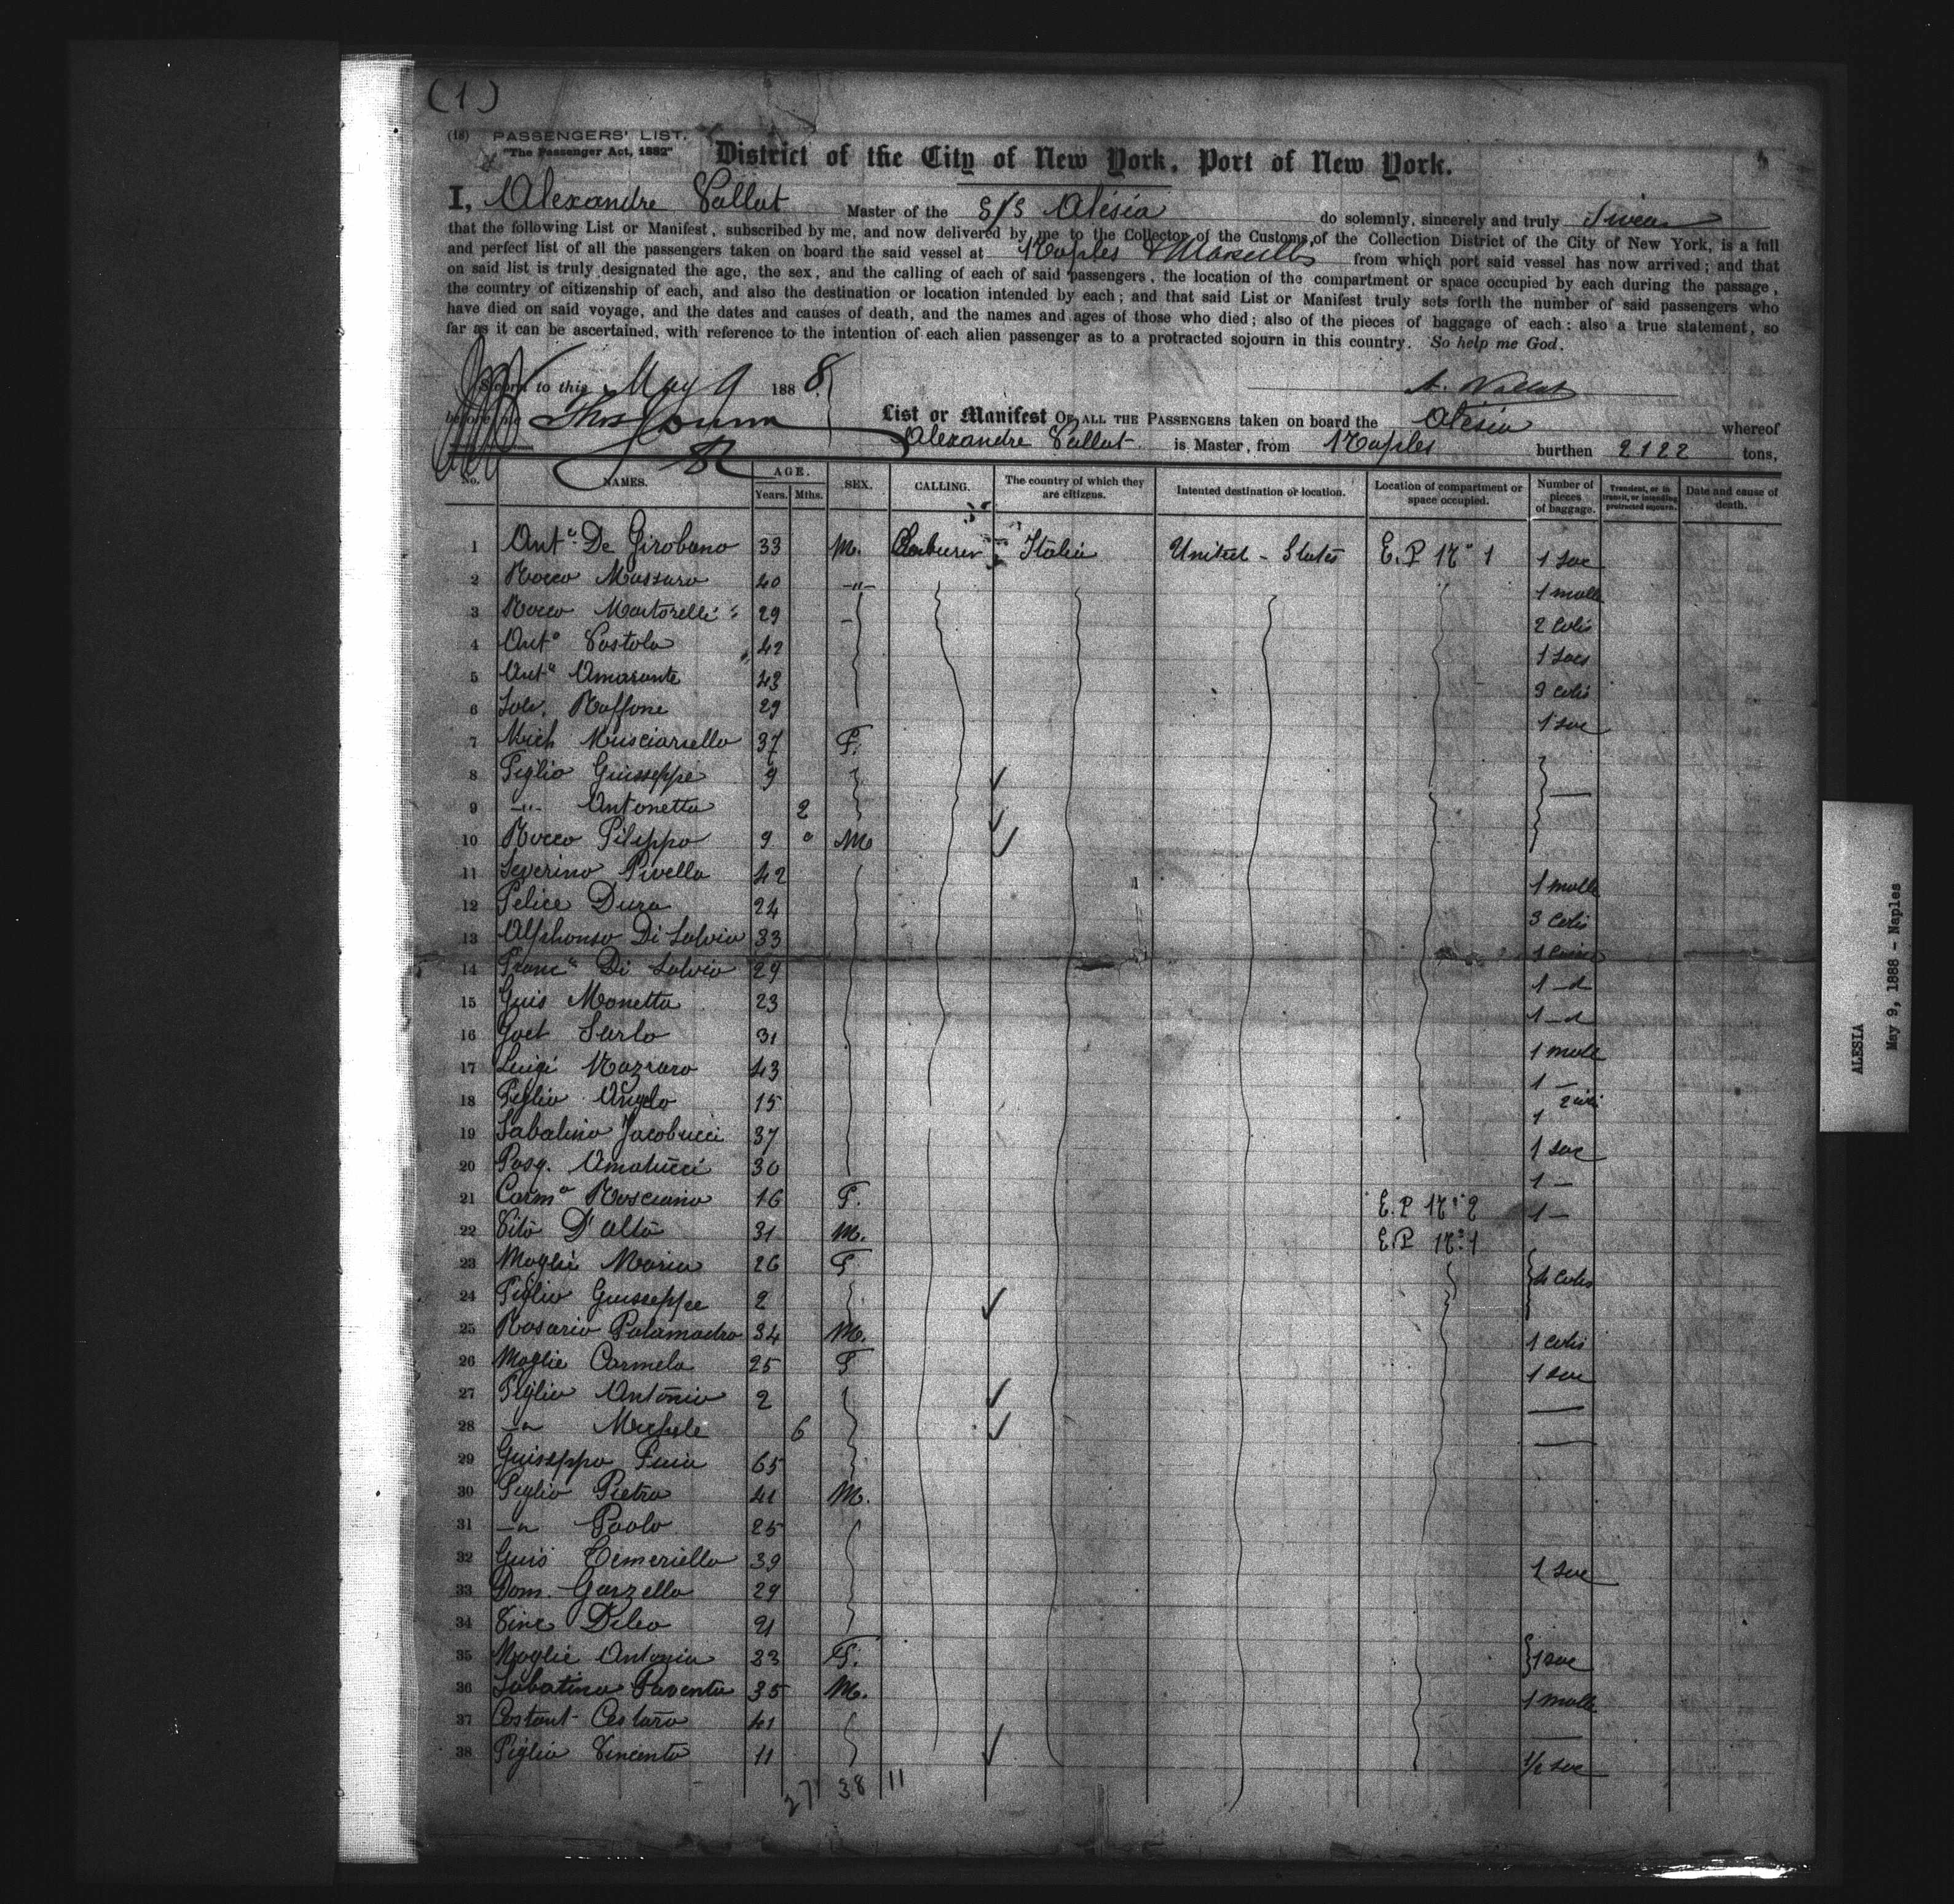 (1)
(18) PASSENGERS' LIST.
"The Passenger Act, 1882"
District of the City of New York, Port of New York.
I, Alexandre Vallat Master of the S/S Alésia do solemnly, sincerely and truly Swear
that the following List or Manifest, subscribed by me, and now delivered by me to the Collector of the Customs of the Collection District of the City of New York, is a full
and perfect list of all the passengers taken on board the said vessel at Naples & Marseilles from which port said vessel has now arrived; and that
on said list is truly designated the age, the sex, and the calling of each of said passengers, the location of the compartment or space occupied by each during the passage,
the country of citizenship of each, and also the destination or location intended by each; and that said List or Manifest truly sets forth the number of said passengers who
have died on said voyage, and the dates and causes of death, and the names and ages of those who died; also of the pieces of baggage of each: also a true statement, so
far as it can be ascertained, with reference to the intention of each alien passenger as to a protracted sojourn in this country. So help me God.
Sworn to this May 9 1888
A. Vallat
before me
List or Manifest OF ALL THE PASSENGERS taken on board the Alésia whereof
Alexandre Vallat is Master, from Naples burthen 2122 tons,
No. NAMES. AGE. Years. Mths. SEX. CALLING. The country of which they are citizens. Intented destination or location. Location of compartment or space occupied. Number of pieces of baggage. Transient, or in transit, or intending protracted sojourn. Date and cause of death.
1 Anto De Girobano 33 M. Laburer Italia United-States E.P No 1 1 sac
2 Rocco Massaro 40 -"- 1 malle
3 Rocco Martorelli 29 2 Colis
4 Anto Vastola 42 1 sacs
5 Anto Amarante 43 3 colis
6 Salv. Raffone 29 1 sac
7 Mich Musciariello 37 F.
8 Figlio Guisseppe 9
9 -"- Antonetta 2
10 Rocco Filippo 9 M
11 Severino Pivella 42 1 malle
12 Felice Dura 24 3 colis
13 Alfhonso Di Salvio 33
14 Franco Di Salvio 29 1 -d
15 Guis Monetta 23 1 -d
16 Gaet Sarlo 31 1 malle
17 Luigi Nazzaro 43 1 -
18 Figlio Angelo 15 1
19 Sabatino Jacobucci 37 1 sac
20 Pasq. Amatucci 30 1 -
21 Carma Rosciano 16 F. E.P No 2 1 -
22 Vito D'alto 31 M. E.P No 1
23 Moglie Maria 26 F 4 colis
24 Figlio Guisseppe 2
25 Rosario Palamadro 34 M. 1 colis
26 Moglie Carmela 25 F 1 sac
27 Figlio Antonio 2
28 -"- Michele 6
29 Guisseppa 65
30 Figlio Pietro 41 M.
31 -"- Paolo 25
32 Guis Cimeriello 39 1 sac
33 Dom. Garzella 29
34 Vinc Dileo 21
35 Moglie Antonia 23 F. 1 sac
36 Sabatino Paventa 35 M. 1 malle
37 Costant Cestaro 41
38 Figlio Vincento 11 1/2 sac
27 38 11
ALESIA
May 9, 1888 - Naples